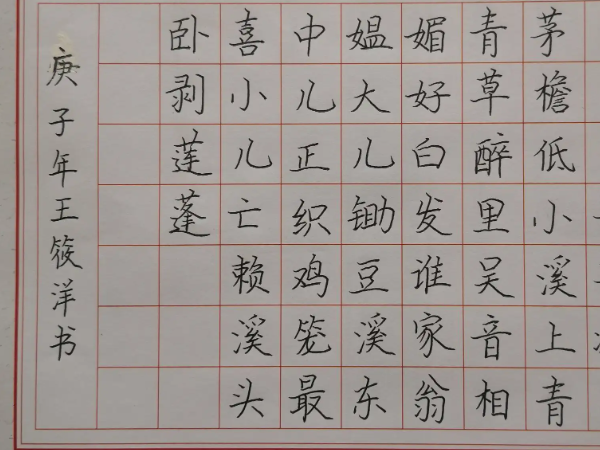 茅檐低小溪上青
青草醉里吴音相
媚好白发谁家翁
媪大儿锄豆溪东
中儿正织鸡笼最
喜小儿亡赖溪头
卧剥莲蓬
庚子年王筱洋书